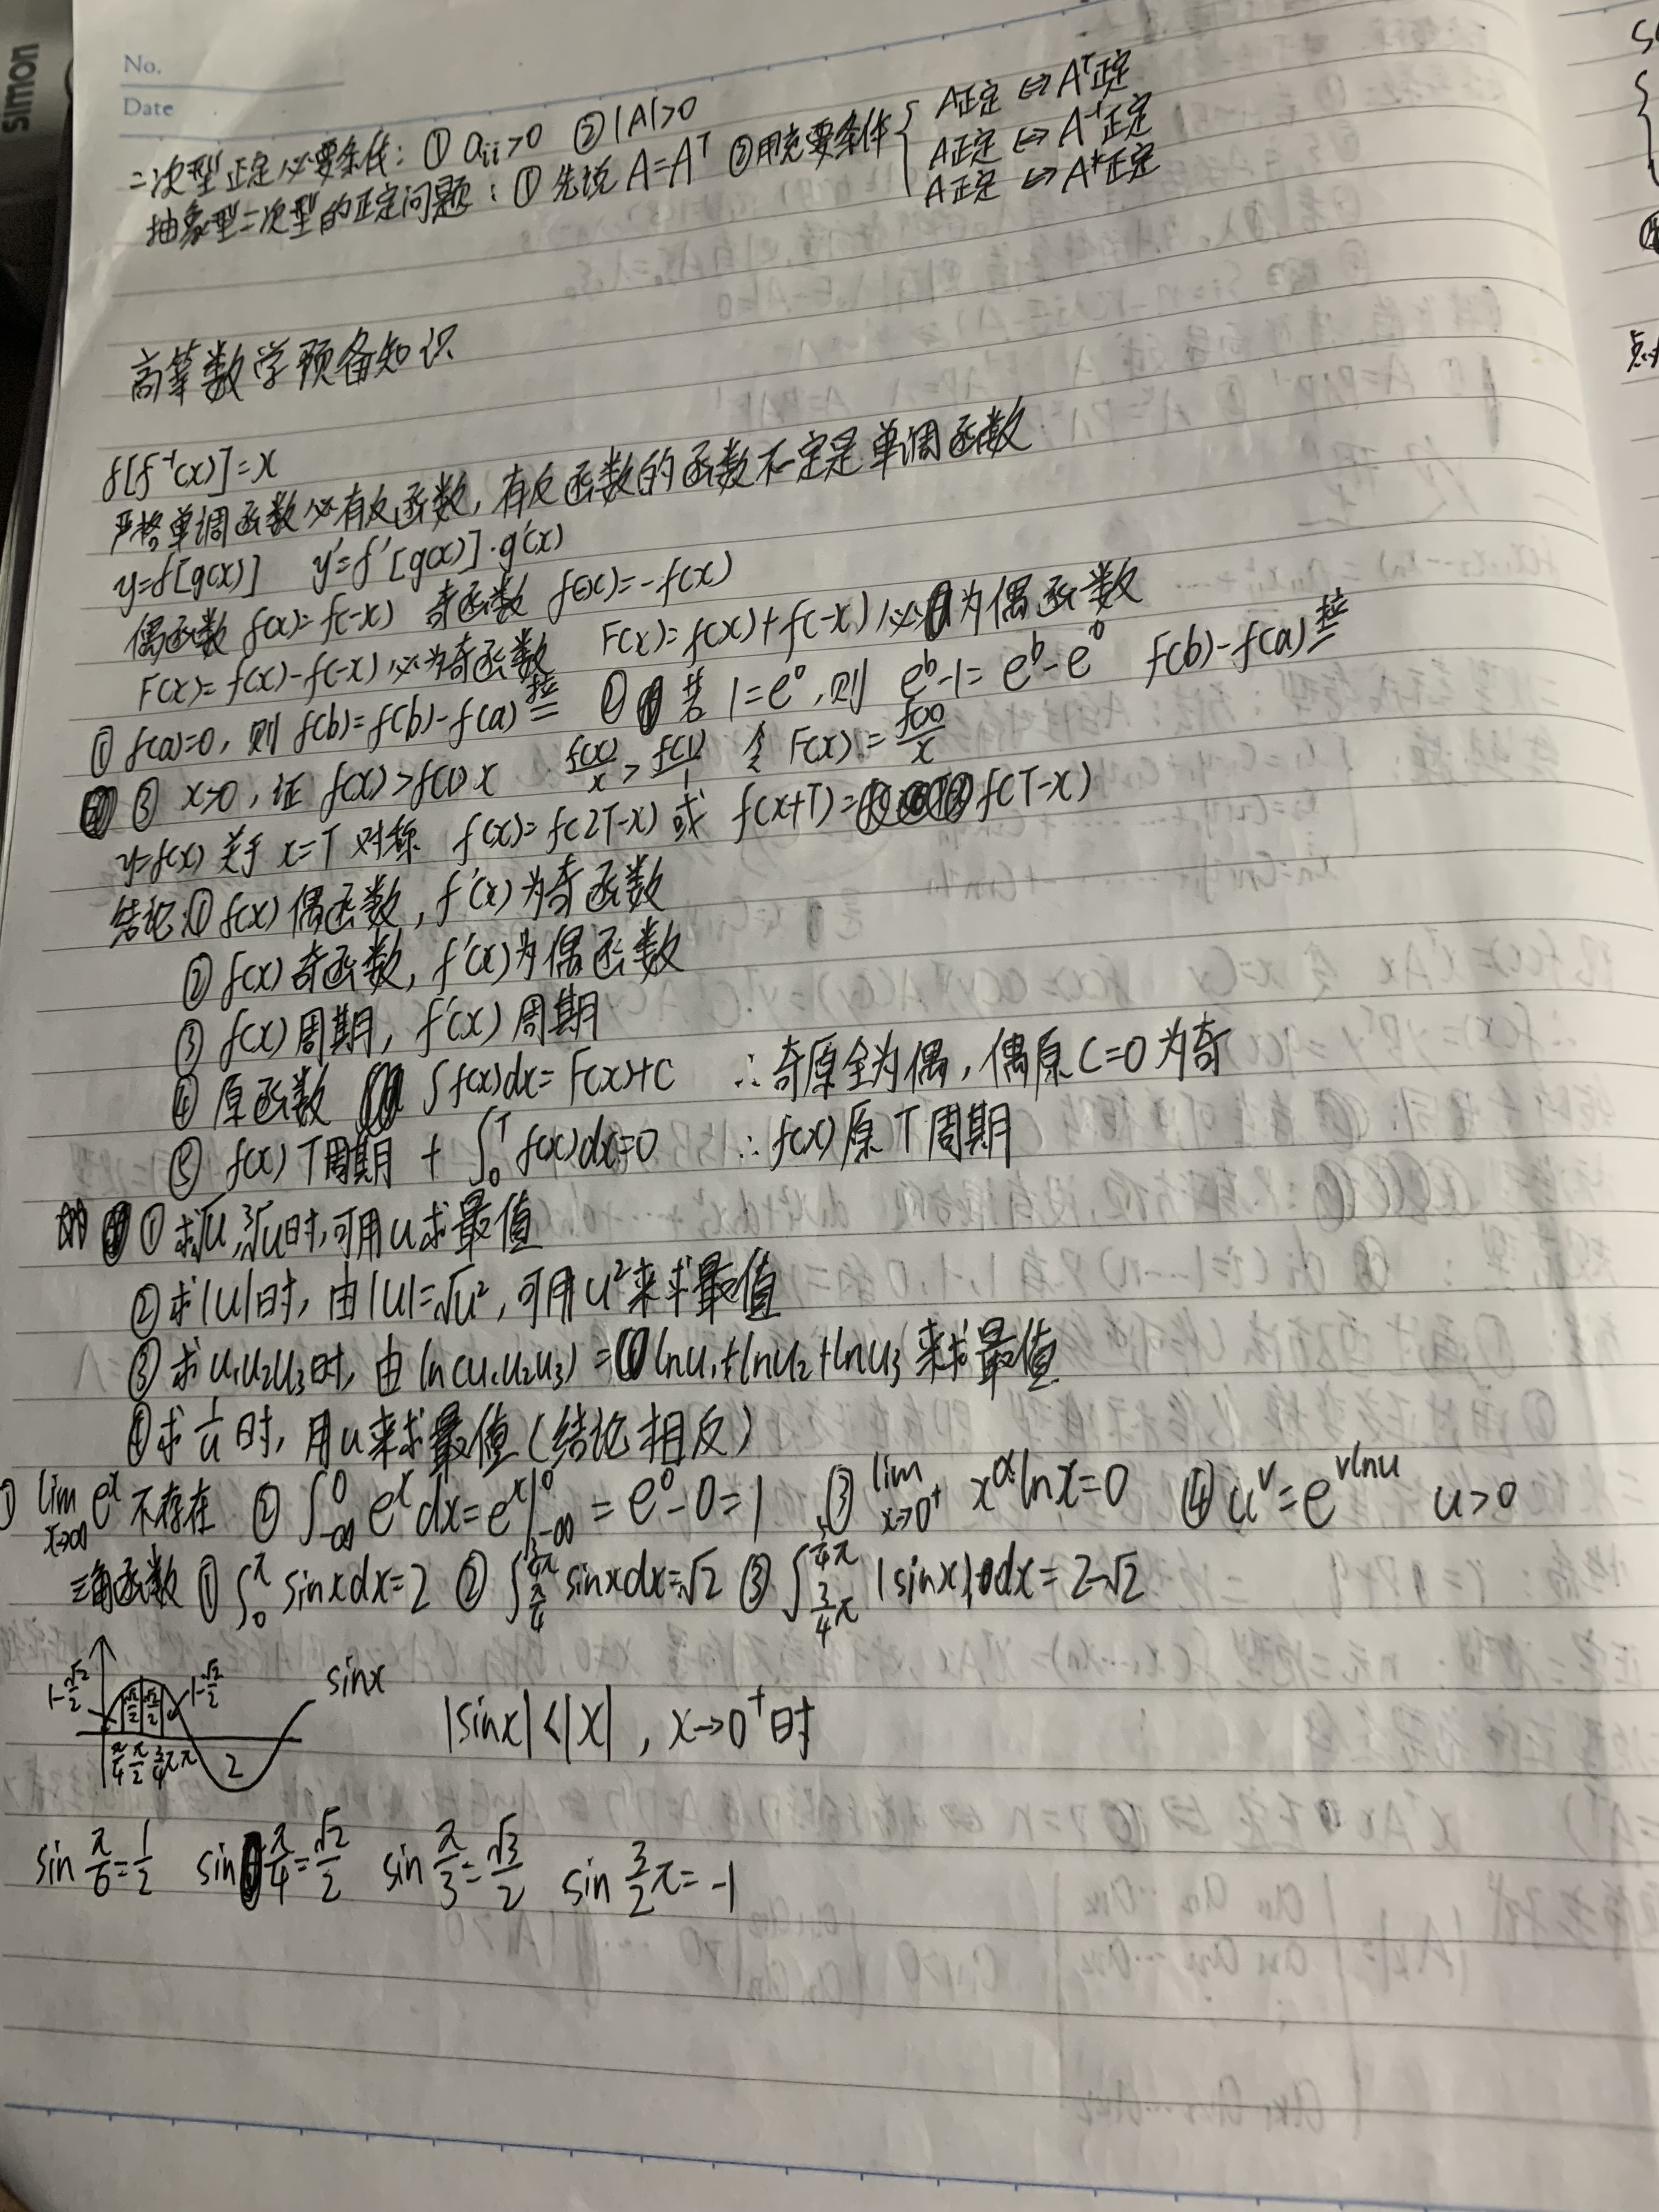 simon
No.
Date
二次型正定必要条件：① aii>0 ② |A|>0
抽象型二次型的正定问题：① 先说 A=Aᵀ ② 用充要条件
A正定 ⇔ Aᵀ正定
A正定 ⇔ A⁻¹正定
A正定 ⇔ A*正定
高等数学预备知识
f[f⁻¹(x)]=x
严格单调函数必有反函数，有反函数的函数不一定是单调函数
y=f[g(x)] y'=f'[g(x)]·g'(x)
偶函数 f(x)=f(-x) 奇函数 f(-x)=-f(x)
F(x)=f(x)-f(-x)必为奇函数 F(x)=f(x)+f(-x)必为偶函数
① f(a)=0，则 f(b)=f(b)-f(a) 拉 ② 若 1=e⁰，则 eᵇ-1=eᵇ-e⁰ f(b)-f(a) 拉
③ x>0，证 f(x)>f(1)x f(x)/x > f(1)/1 令 F(x)=f(x)/x
y=f(x) 关于 x=T 对称 f(x)=f(2T-x) 或 f(x+T)=f(T-x)
结论：① f(x) 偶函数，f'(x)为奇函数
② f(x)奇函数，f'(x)为偶函数
③ f(x)周期，f'(x)周期
④ 原函数 ∫f(x)dx=F(x)+C ∴奇原全为偶，偶原C=0为奇
⑤ f(x) T周期 + ∫₀ᵀ f(x)dx=0 ∴f(x)原T周期
① 求√u, ∛u时，可用u求最值
② 求|u|时，由|u|=√u²，可用u²来求最值
③ 求u₁u₂u₃时，由ln(u₁u₂u₃)=lnu₁+lnu₂+lnu₃来求最值
④ 求1/u时，用u来求最值（结论相反）
① lim x→∞ eˣ 不存在 ② ∫_{-∞}^0 eˣdx=eˣ|_{-∞}^0=e⁰-0=1 ③ lim x→0⁺ x^α lnx=0 ④ uᵛ=e^{vlnu} u>0
三角函数 ① ∫₀^π sinxdx=2 ② ∫_{π/4}^{3/4π} sinxdx=√2 ③ |sinx|dx=2-√2
1-√2/2 √2/2 √2/2 1-√2/2 sinx
π/4 π/2 3/4π π 2
|sinx|<|x|，x→0⁺时
sin π/6=1/2 sin π/4=√2/2 sin π/3=√3/2 sin 3/2π=-1